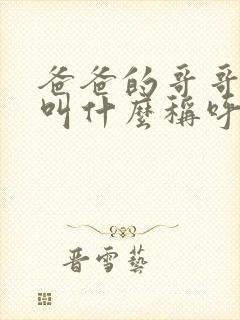 爸爸的哥哥
叫什麼稱呼
晋雪藝